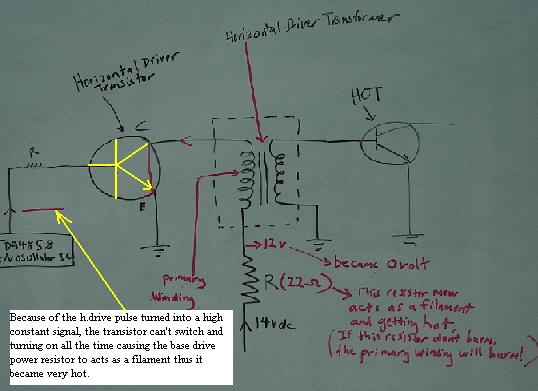 Horizontal Driver Transformer
Horizontal Driver
Transistor
HOT
C
R
E
12v
became 0 volt
R (22Ω)
Primary
Winding
This resistor now
acts as a filament
and getting hot.
(If this resistor dont burn,
the primary winding will burn!)
14vdc
Because of the h.drive pulse turned into a high
constant signal, the transistor can't switch and
turning on all the time causing the base drive
power resistor to acts as a filament thus it
became very hot.